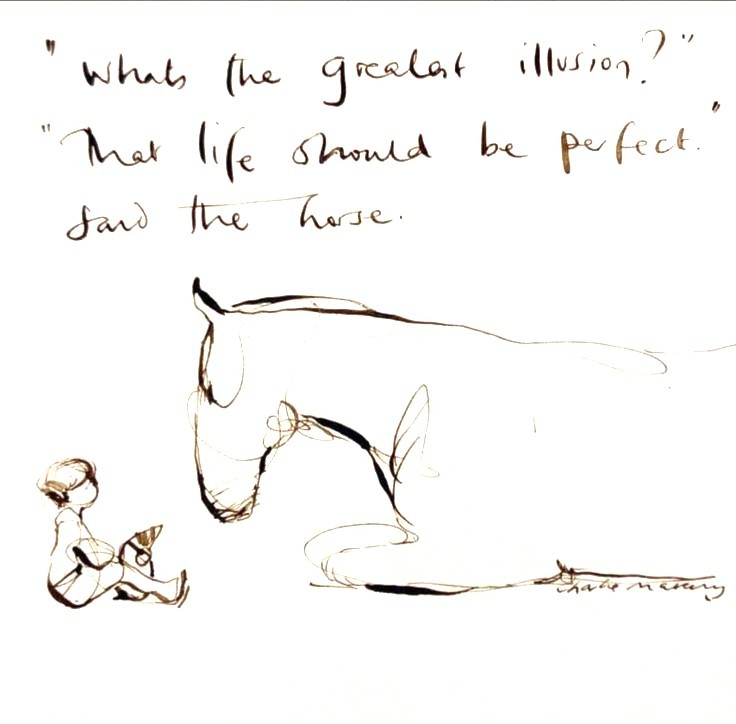 "Whats the greatest illusion?"
"That life should be perfect."
Said the horse.
Charlie Mackesy